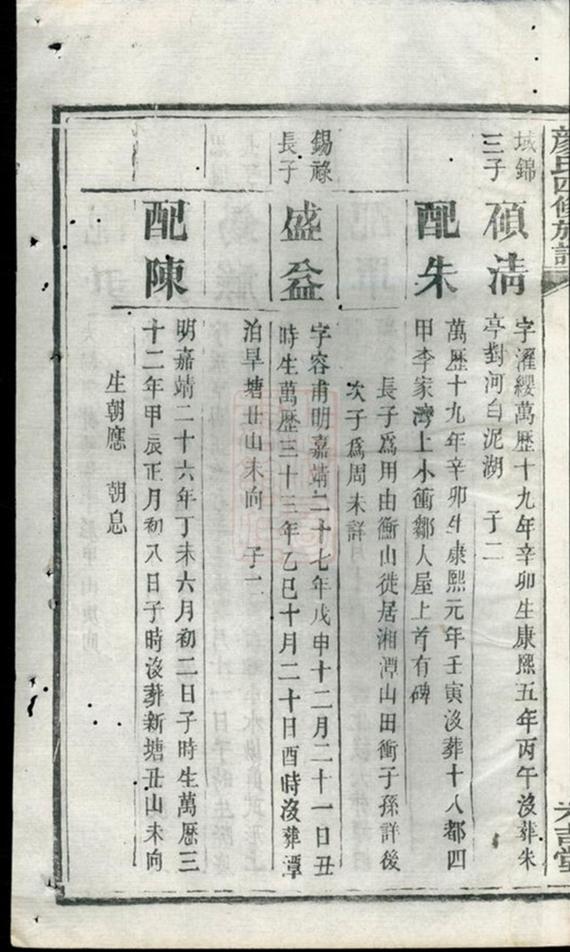 顏氏四修族譜
域錦
三子
碩清
字濯纓萬歷十九年辛卯生康熙五年丙午沒葬朱
亭對河白泥湖 子二
配朱
萬歷十九年辛卯生康熙元年壬寅沒葬十八都四
甲李家灣上小衝鄒人屋上首有碑
長子爲用由衡山徙居湘潭山田衝子孫詳後
次子爲周未詳
錫祿
長子
盛益
字容甫明嘉靖二十七年戊申十二月二十一日丑
時生萬歷三十三年乙巳十月二十日酉時沒葬潭
泊旱塘丑山未向 子二
配陳
明嘉靖二十六年丁未六月初二日子時生萬歷三
十二年甲辰正月初八日子時沒葬新塘丑山未向
生朝應 朝息